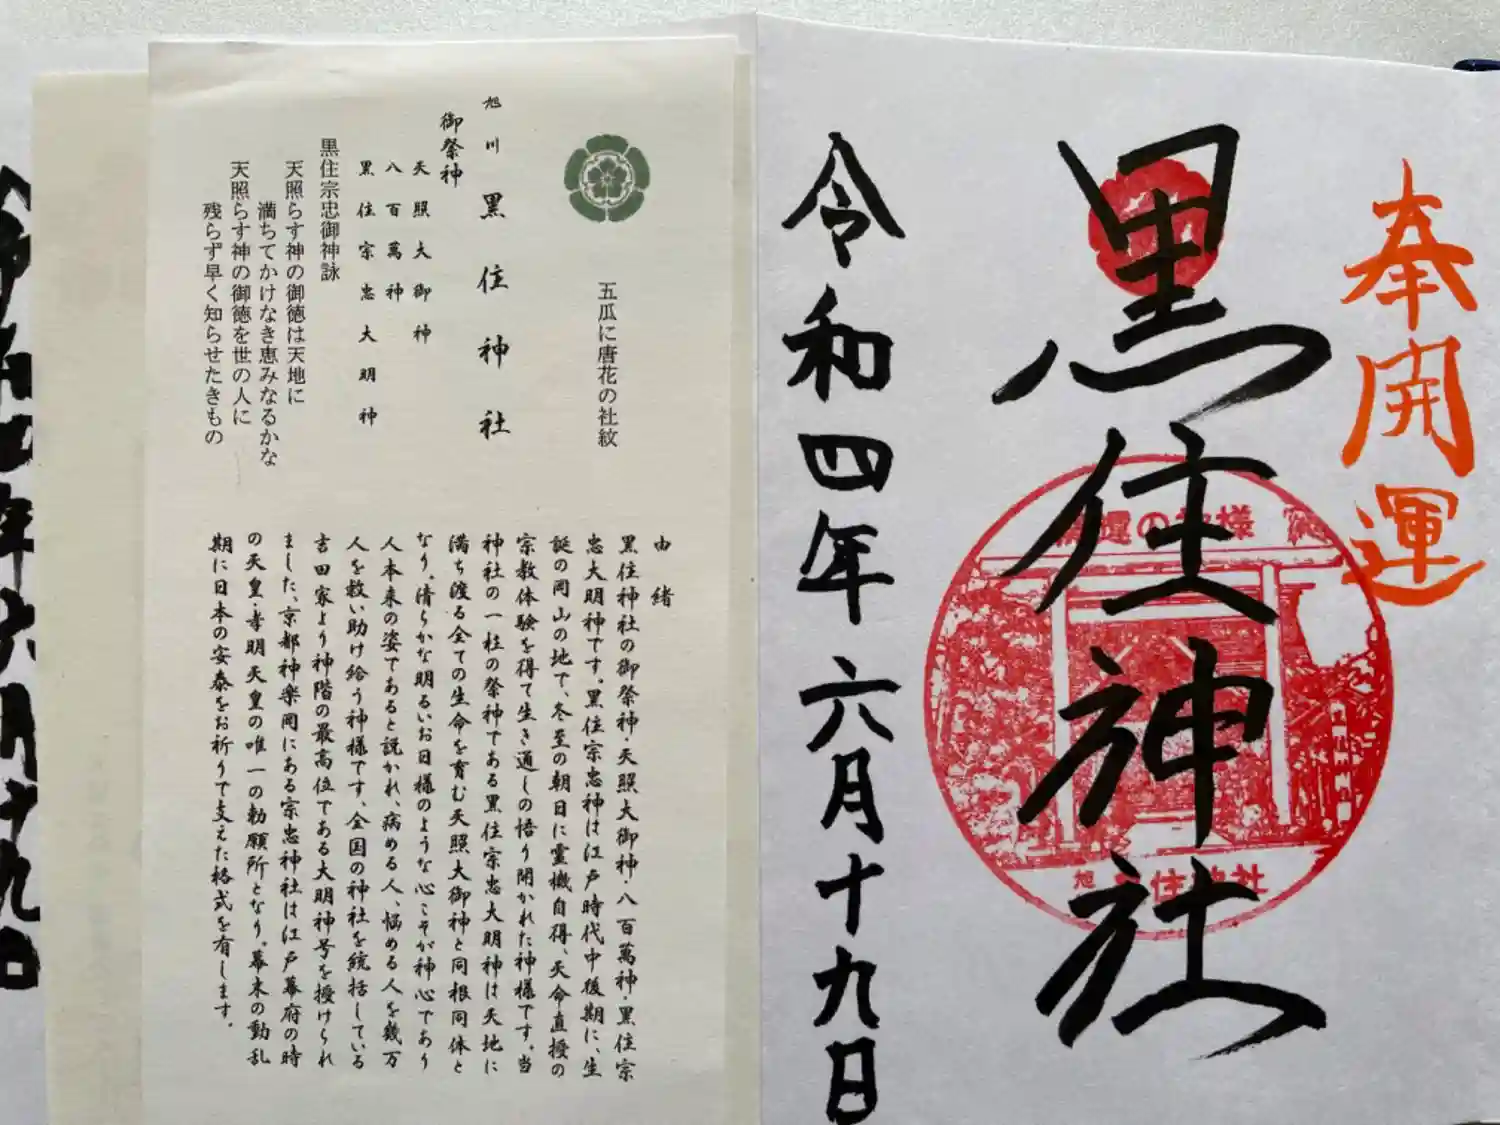 奉開運
黒住神社
令和四年六月十九日
五瓜に唐花の社紋
旭川 黒住神社
御祭神
天照大御神
八百萬神
黒住宗忠大明神
黒住宗忠御神詠
天照らす神の御徳は天地に
満ちてかけなき恵みなるかな
天照らす神の御徳を世の人に
残らず早く知らせたきもの
由緒
黒住神社の御祭神・天照大御神・八百萬神・黒住宗
忠大明神です。黒住宗忠神は江戸時代中後期に、生
誕の岡山の地で、冬至の朝日に霊機自得、天命直授の
宗教体験を得て生き通しの悟り開かれた神様です。当
神社の一柱の祭神である黒住宗忠大明神は天地に
満ち渡る全ての生命を育む天照大御神と同根同体と
なり、清らかな明るいお日様のような心こそが神心であり
人本来の姿であると説かれ、病める人、悩める人を幾万
人を救い助け給う神様です、全国の神社を統括している
吉田家より神階の最高位である大明神号を授けられ
ました、京都神楽岡にある宗忠神社は江戸幕府の時
の天皇・孝明天皇の唯一の勅願所となり。幕末の動乱
期に日本の安泰をお祈りで支えた格式を有します。
の神様
住神社